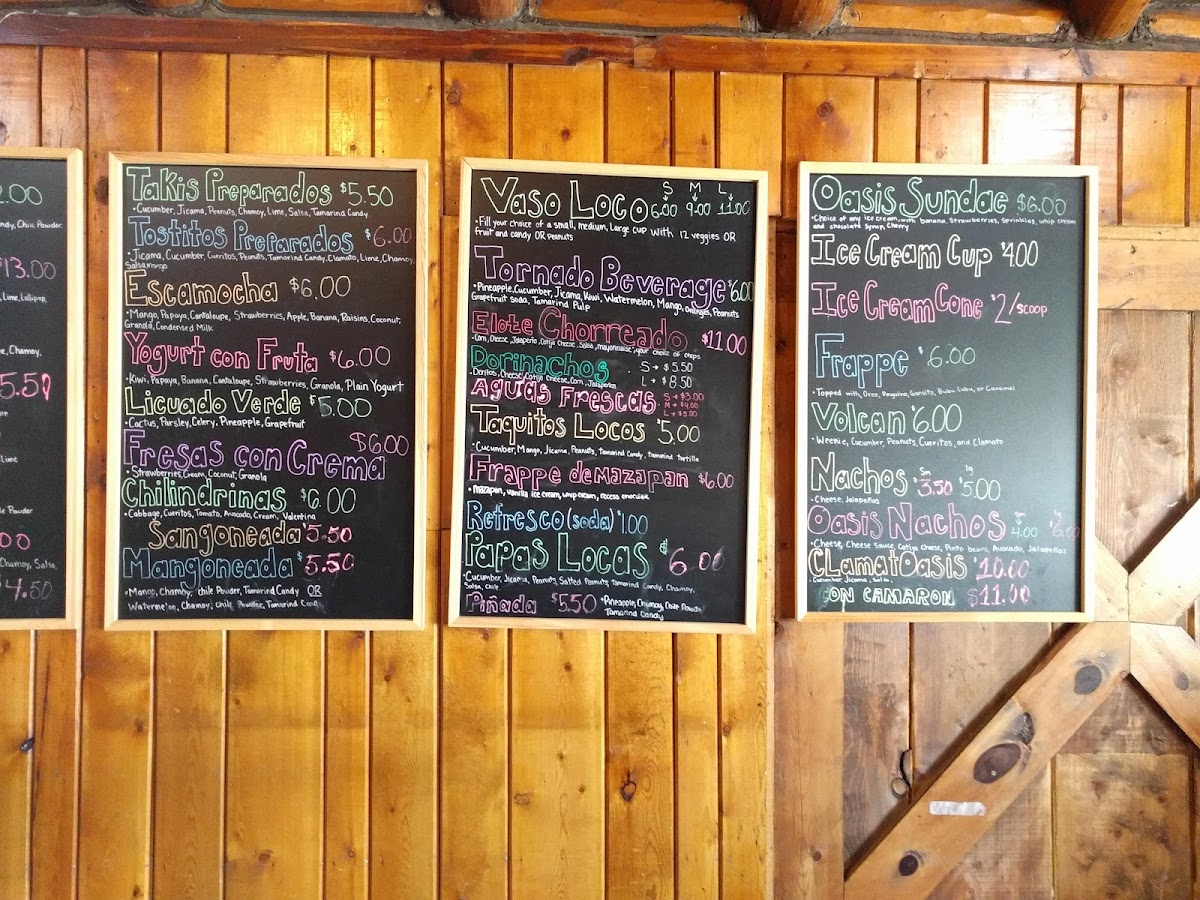 2.00
$13.00
Lime, Lollipop,
e, Chamoy,
5.50
Lime
le Powder
Chamoy, Salsa,
4.50
Takis Preparados $5.50
•Cucumber, Jicama, Peanuts, Chamoy, Lime, Salsa, Tamarind Candy
Tostitos Preparados $6.00
•Jicama, Cucumber, Cueritos, Peanuts, Tamarind Candy, Clamato, Lime, Chamoy,
Escamocha $6.00
•Mango, Papaya, Cantaloupe, Strawberries, Apple, Banana, Raisins, Coconut,
Granola, Condensed Milk
Yogurt con Fruta $6.00
•Kiwi, Papaya, Banana, Cantaloupe, Strawberries, Granola, Plain Yogurt
Licuado Verde $5.00
•Cactus, Parsley, Celery, Pineapple, Grapefruit
$6.00
Fresas con Crema
•Strawberries, Cream, Coconut, Granola
Chilindrinas $6.00
•Cabbage, Cueritos, Tomato, Avocado, Cream, Valentina
Sangoneada $5.50
Mangoneada $5.50
•Mango, Chamoy, Chile Powder, Tamarind Candy OR
Watermelon, Chamoy, Chile Powder, Tamarind Candy
S M L
Vaso Loco 6.00 9.00 11.00
•Fill your choice of a small, medium, Large cup with 12 veggies OR
fruit and candy OR peanuts
Tornado Beverage $6.00
•Pineapple, Cucumber, Jicama, Kiwi, Watermelon, Mango, Oranges, Peanuts
Grapefruit soda, Tamarind Pulp
Elote Chorreado $11.00
•Corn, Cheese, Jalapeño, Cotija Cheese, Salsa, mayonnaise, your choice of chips
Dorinachos S → $5.50
•Doritos, Cheese, Cotija Cheese, Corn, Jalapeños L → $8.50
Aguas Frescas S → $3.00
M → $4.00
L → $5.00
Taquitos Locos $5.00
•Cucumber, Mango, Jicama, Peanuts, Tamarind Candy, tamarind tortilla
Frappe de Mazapan $6.00
•Mazapan, vanilla ice cream, whip cream,
Refresco (soda) $1.00
Papas Locas $6.00
•Cucumber, Jicama, Peanuts, Salted Peanuts, Tamarind Candy, Chamoy,
Salsa, Chile
Piñada $5.50 •Pineapple, Chamoy, Chile Powder,
Tamarind Candy
Oasis Sundae $6.00
•Choice of any ice cream, with banana, Strawberries, Sprinkles, whip cream
and chocolate syrup, Cherry
Ice Cream Cup $4.00
Ice Cream Cone $2/scoop
Frappe $6.00
•Topped with, Oreo, Pinguino, Gansito, Bubu Lubu, or Caramel
Volcan $6.00
•Weenie, Cucumber, Peanuts, Cueritos, and Clamato
Nachos Sm $3.50 lg $5.00
•Cheese, Jalapeños
Oasis Nachos Sm 4.00 lg $6.00
•Cheese, Cheese Sauce, Cotija Cheese, Pinto beans, Avocado, Jalapeños
Clamatoasis $10.00
Con Camaron $11.00